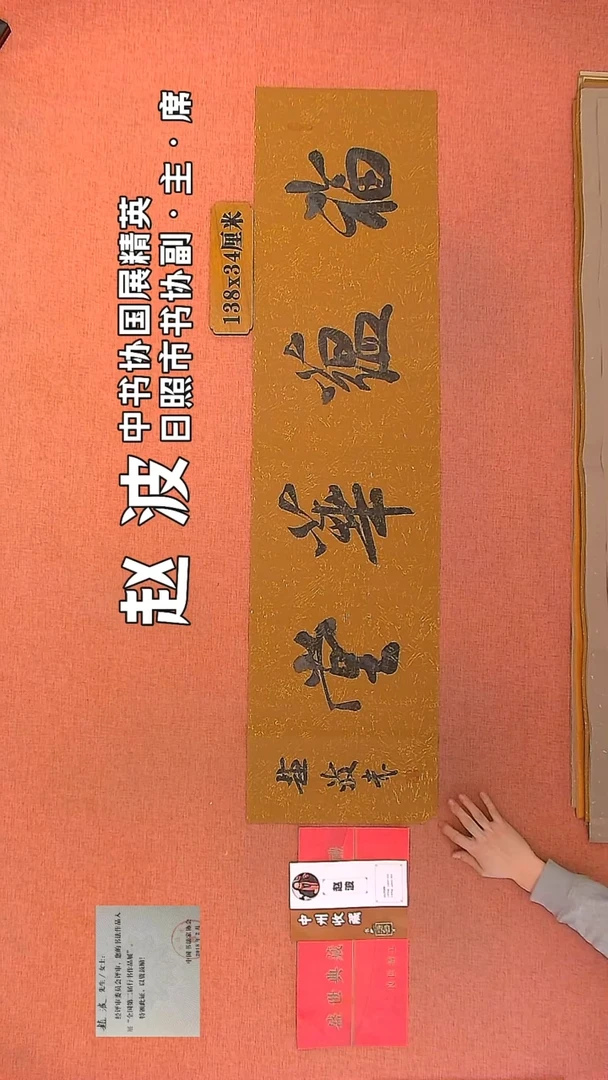 赵波
中书协国展精英
日照市书协副·主·席
138x34厘米
福蕴華堂
赵波书
赵波
中州收藏
盛世典藏
赵波 先生/女士：
经评审委员会评审，您的书法作品入
"全国第二届行书作品展"。
特颁此证，以资鼓励！
中国书法家协会